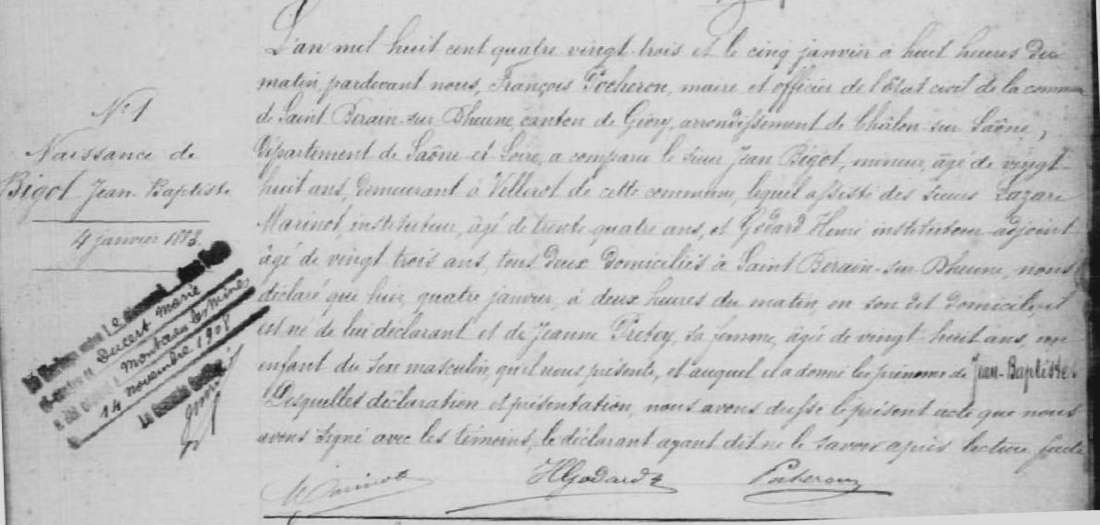 N° 1
Naissance de
Bigot Jean-Baptiste
4 janvier 1883.
Le mariage entre le dénommé
ci-contre et Decert Marie
a été célébré à Montceau les Mines
le 14 novembre 1908
Le
L'an mil huit cent quatre-vingt-trois et le cinq janvier à huit heures du
matin, pardevant nous, François Pocheron, maire et officier de l'état civil de la commune
de Saint Berain-sur-Dheune, canton de Givry, arrondissement de Châlon-sur-Saône,
département de Saône-et-Loire, a comparu le sieur Jean Bigot, mineur, âgé de vingt-
huit ans, demeurant à Villerot de cette commune, lequel assisté des sieurs Lazare
Marinot, instituteur, âgé de trente-quatre ans, et Godard Henri instituteur-adjoint
âgé de vingt-trois ans, tous deux domiciliés à Saint Berain-sur-Dheune, nous a
déclaré que hier, quatre janvier, à deux heures du matin, en son dit domicile, il
est né de lui déclarant et de Jeanne sa femme, âgée de vingt-huit ans, un
enfant du sexe masculin, qu'il nous présente, et auquel il a donné les prénoms de Jean-Baptiste.
Desquelles déclaration et présentation, nous avons dressé le présent acte que nous
avons signé avec les témoins, le déclarant ayant dit ne le savoir après lecture faite
Marinot HGodard Pocheron